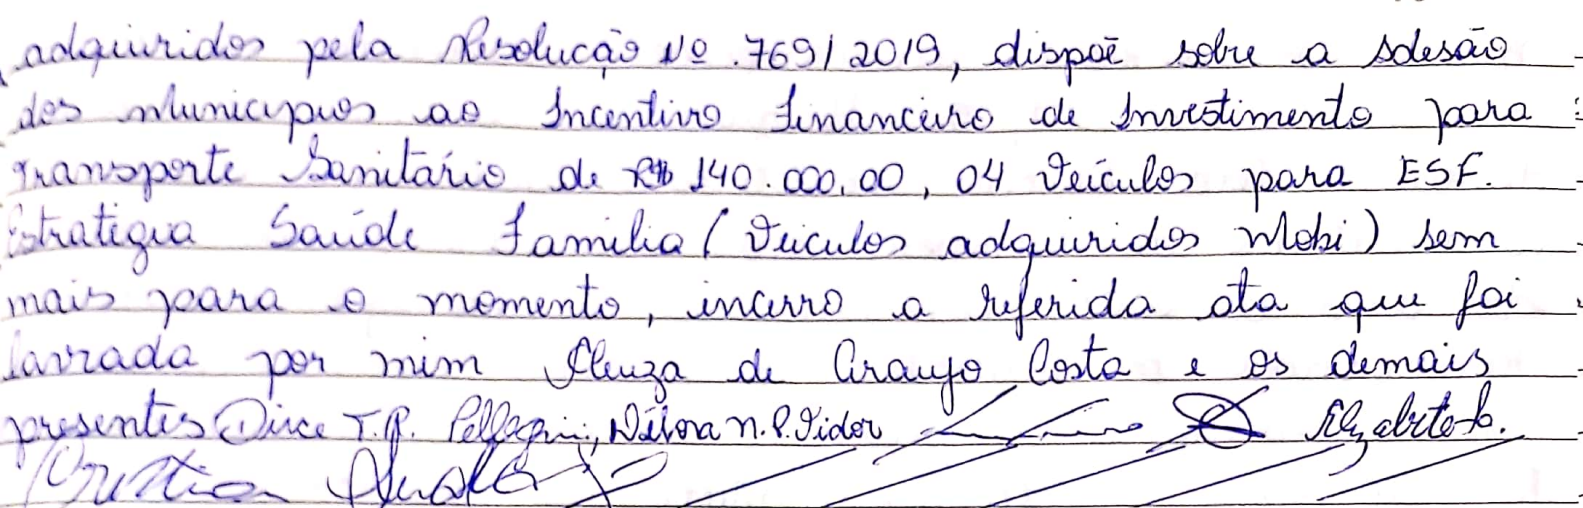 adquiridos pela Resolução Nº 769/2019, dispõe sobre a Adesão
dos Municipios ao Incentivo Financeiro de Investimento para
Transporte Sanitário de R$ 140.000,00, 04 Veículos para ESF.
Estrategia Saúde Familia (Veiculos adquiridos Mobi) sem
mais para o momento, incerro a referida ata que foi
lavrada por mim Cleuza de Araujo Costa e os demais
presentes Dirce T.P. Pellegrini, Débora N.P. Vidor
Cristian